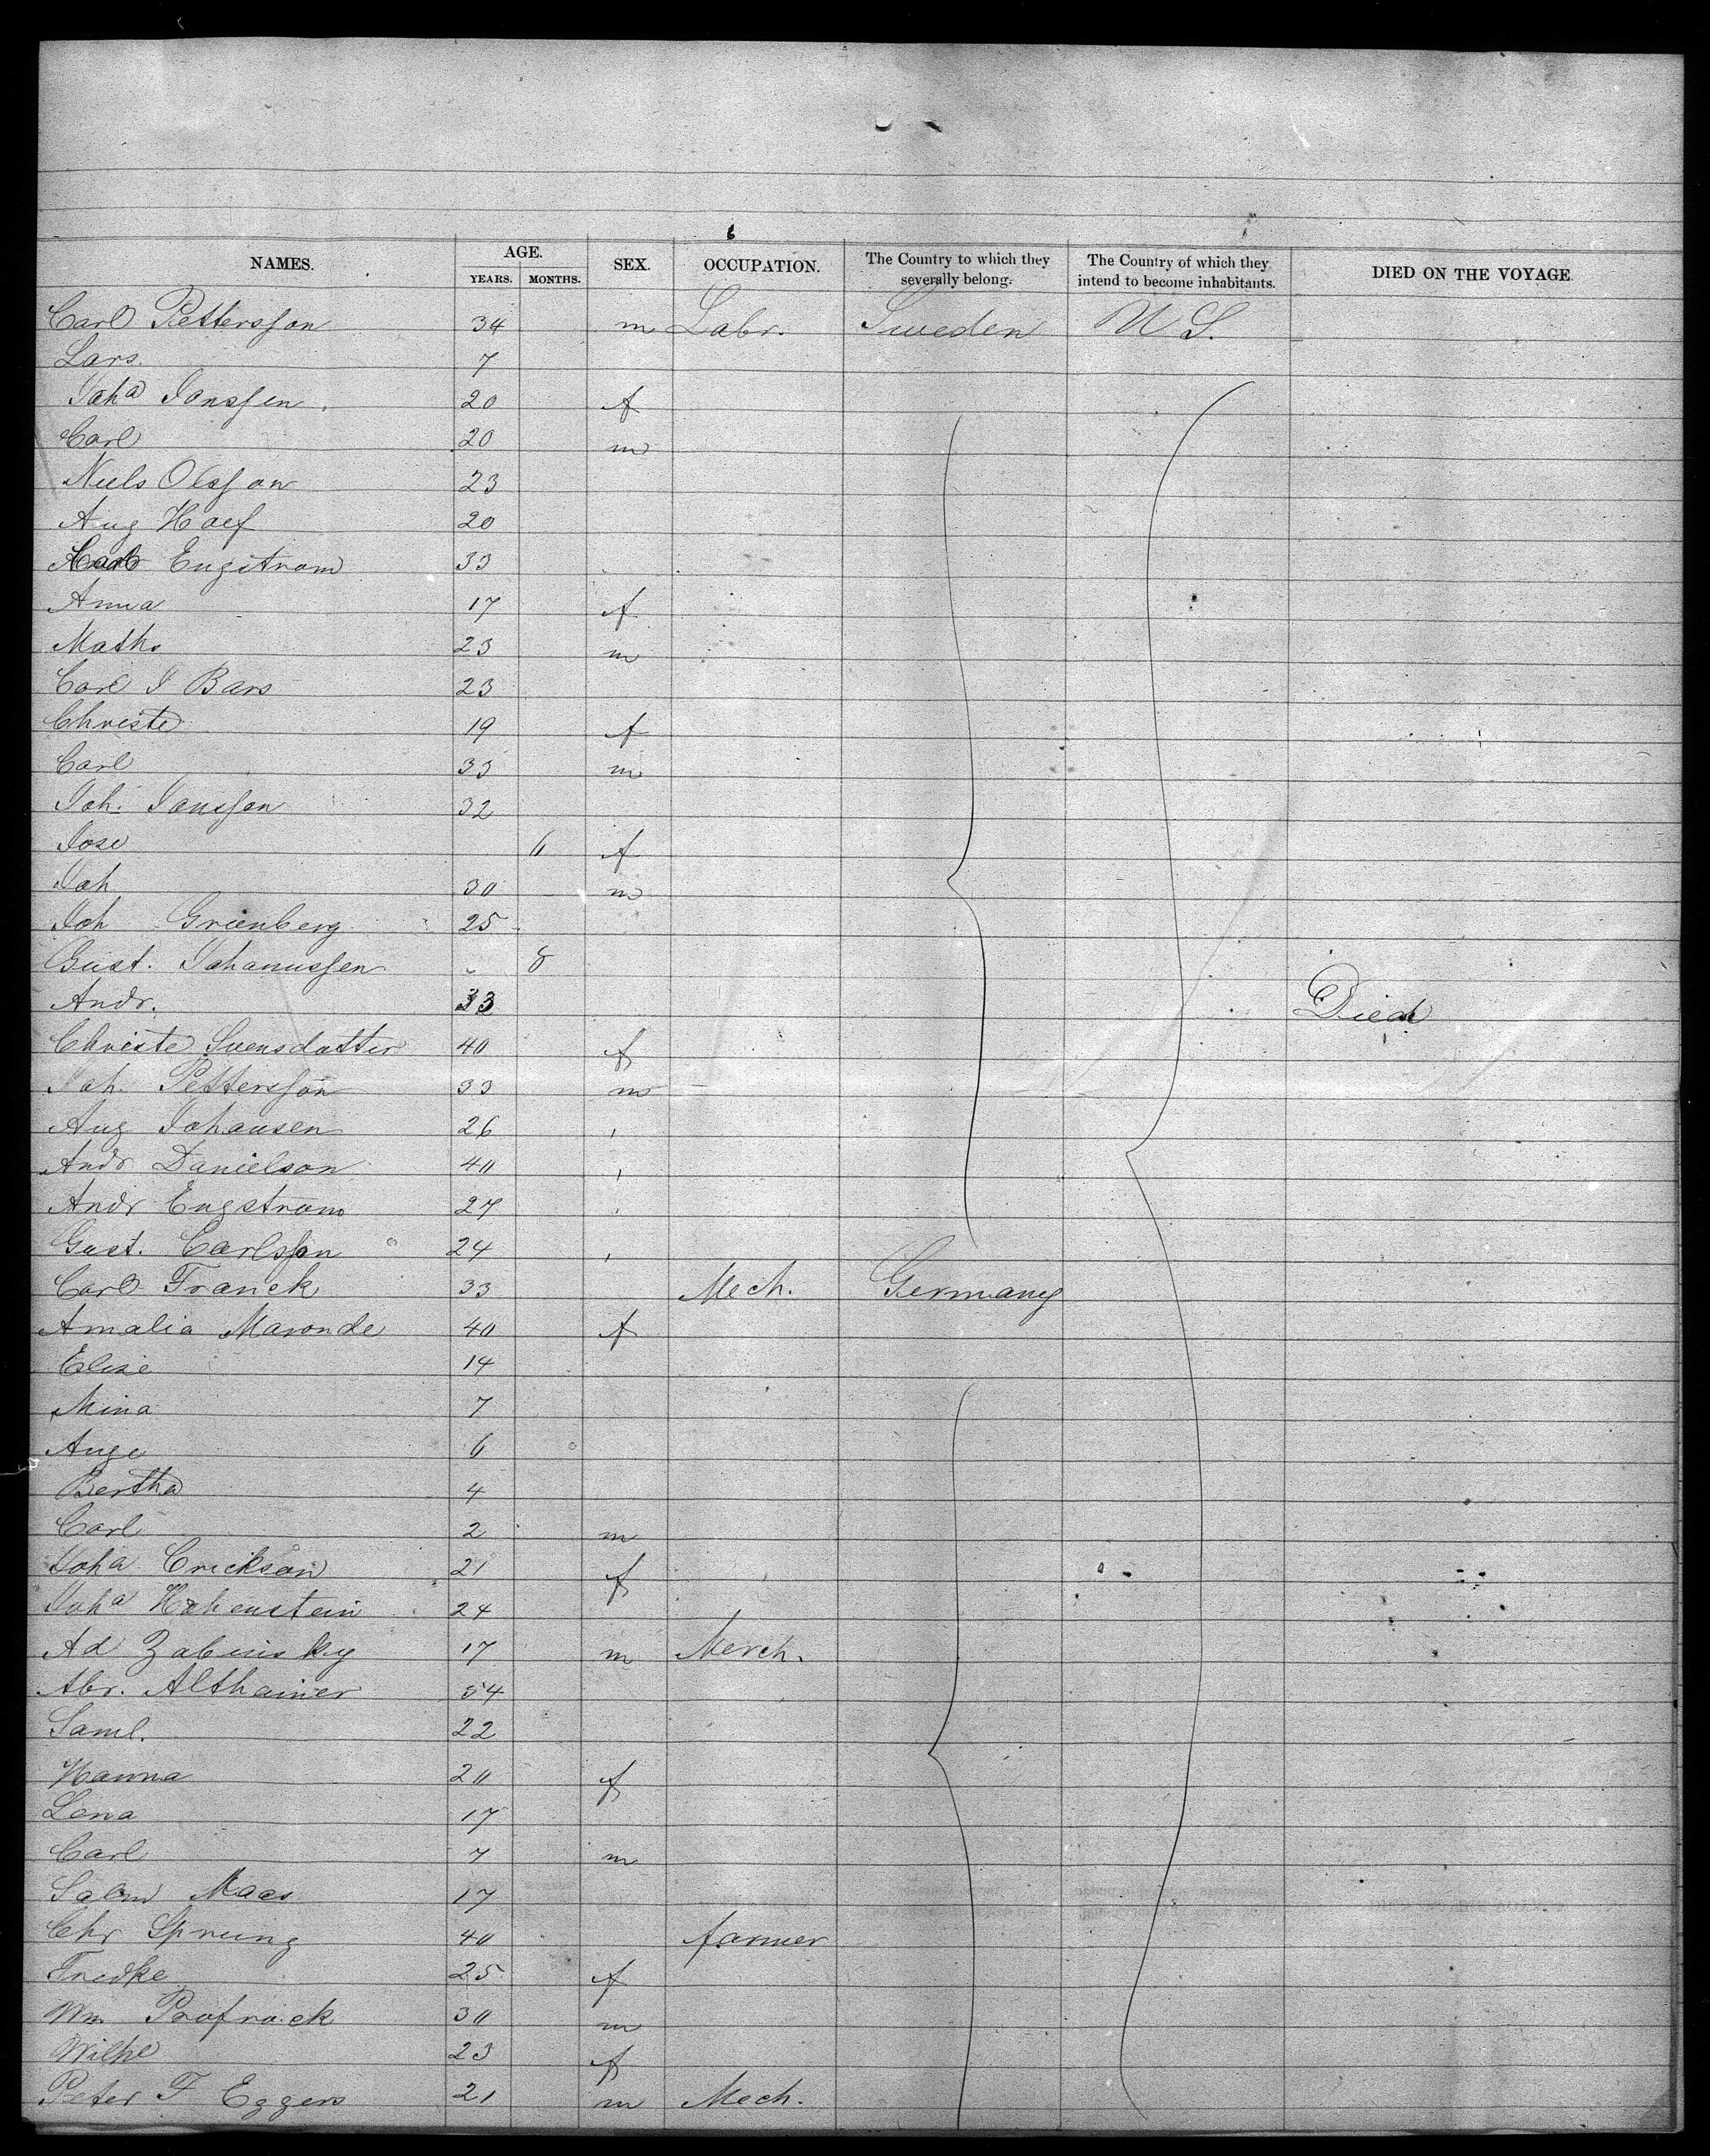 6
NAMES. AGE. SEX. OCCUPATION. The Country to which they severally belong. The Country of which they intend to become inhabitants. DIED ON THE VOYAGE
YEARS. MONTHS.
Carl Pettersson 34 m Labr. Sweden U S.
Lars 7
Joha Jonssen 20 f
Carl 20 m
Niels Olsson 23
Aug Hoef 20
Carl Engstrom 33
Anna 17 f
Maths 23 m
Carl J Bars 23
Christe 19 f
Carl 33 m
Joh. Jonsson 32
Jose 6 f
Joh 30 m
Joh Grienberg 25
Gust. Johanussen 8
Andr. 33 Died
Christe Svensdatter 40 f
Joh. Pettersson 33 m
Aug Johansen 26
Andr Danielson 40
Andr Engstrom 27
Gust. Carlsson 24
Carl Franck 33 Mech. Germany
Amalia Maronde 40 f
Elise 14
Mina 7
Auge 6
Bertha 4
Carl 2 m
Joha Erickson 21 f
Joha Hohenstein 24
Ad Zabinsky 17 m Merch.
Abr. Althainer 54
Saml. 22
Hanna 20 f
Lena 17
Carl 7 m
Maas 17
Chr Sprung 40 farmer
Fredke 25 f
Wm Profrock 30 m
Wilhe 23 f
Peter F Eggers 21 m Mech.